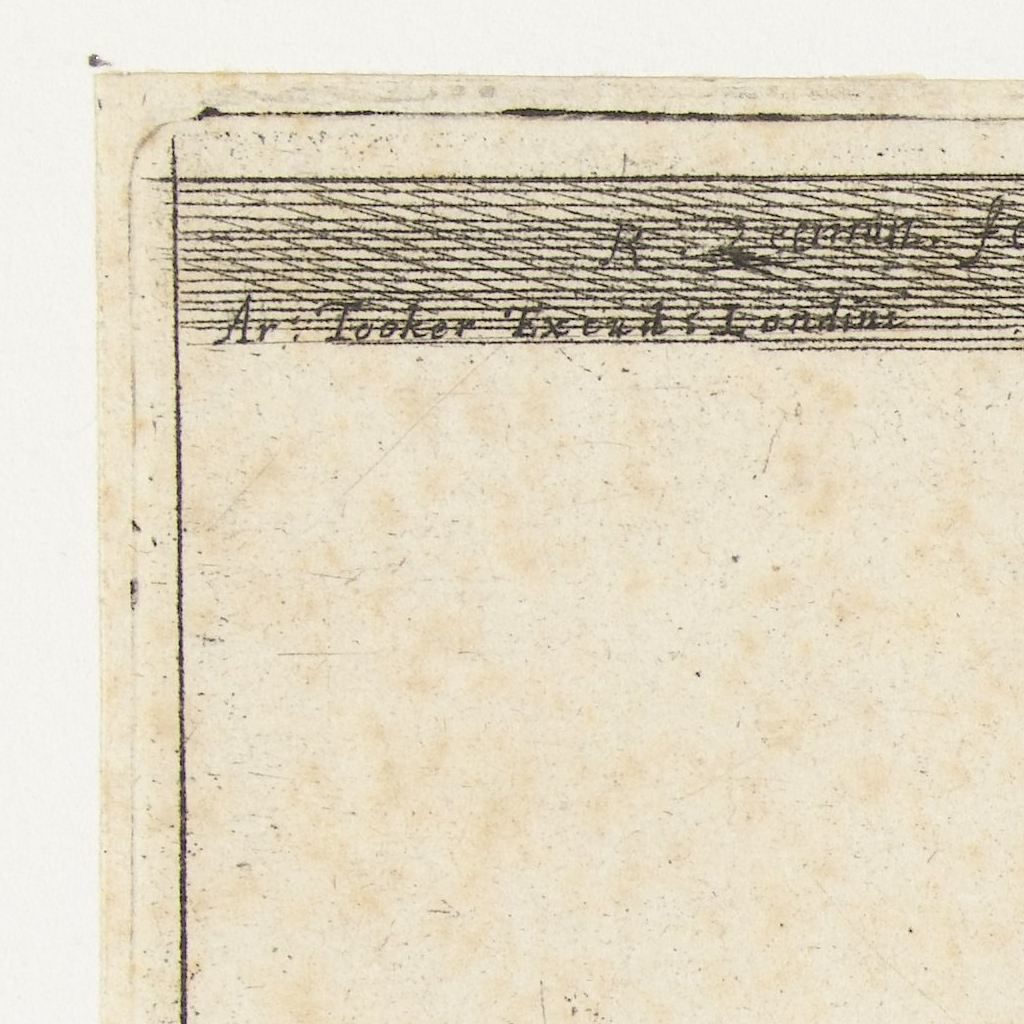 R. Zeeman. fe
Ar: Tooker Excud: Londini